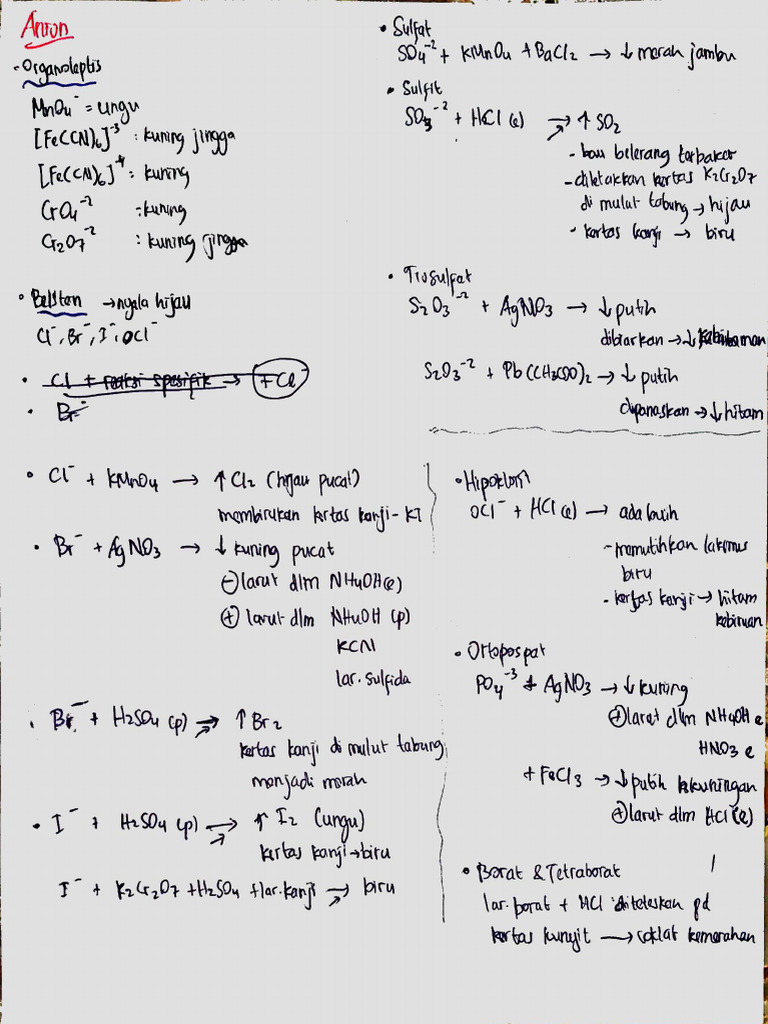 Anion
• Organoleptis
MnO4⁻ = ungu
[Fe(CN)6]⁻³ : kuning jingga
[Fe(CN)6]⁻⁴ : kuning
CrO4⁻² : kuning
Cr2O7⁻² : kuning jingga
• Belstein → nyala hijau
Cl⁻, Br⁻, I⁻, OCl⁻
• Cl + reaksi spesifik → + Cl⁻
• Br⁻
• Cl⁻ + KMnO4 → ↑ Cl2 (hijau pucat)
membirukan kertas kanji-KI
• Br⁻ + AgNO3 → ↓ kuning pucat
⊖ larut dlm NH4OH (e)
⊕ larut dlm NH4OH (p)
KCN
lar. sulfida
• Br⁻ + H2SO4 (p) → ↑ Br2
kertas kanji di mulut tabung
menjadi merah
• I⁻ + H2SO4 (p) → ↑ I2 (ungu)
kertas kanji → biru
I⁻ + K2Cr2O7 + H2SO4 + lar. kanji → biru
• Sulfat
SO4⁻² + KMnO4 + BaCl2 → ↓ merah jambu
• Sulfit
SO3⁻² + HCl (e) → ↑ SO2
- bau belerang terbakar
- diletakkan kertas K2Cr2O7
di mulut tabung → hijau
- kertas kanji → biru
• Tiosulfat
S2O3⁻² + AgNO3 → ↓ putih
dibiarkan → ↓
S2O3⁻² + Pb(CH3COO)2 → ↓ putih
dipanaskan → ↓ hitam
• Hipoklorit
OCl⁻ + HCl (e) → ada
- memutihkan lakmus
biru
- kertas kanji → hitam
kebiruan
• Ortopospat
PO4⁻³ + AgNO3 → ↓ kuning
⊕ larut dlm NH4OH e
HNO3 e
+ FeCl3 → ↓ putih kekuningan
⊕ larut dlm HCl (e)
• Borat & Tetraborat
lar. borat + HCl diteteskan pd
kertas kunyit → coklat kemerahan